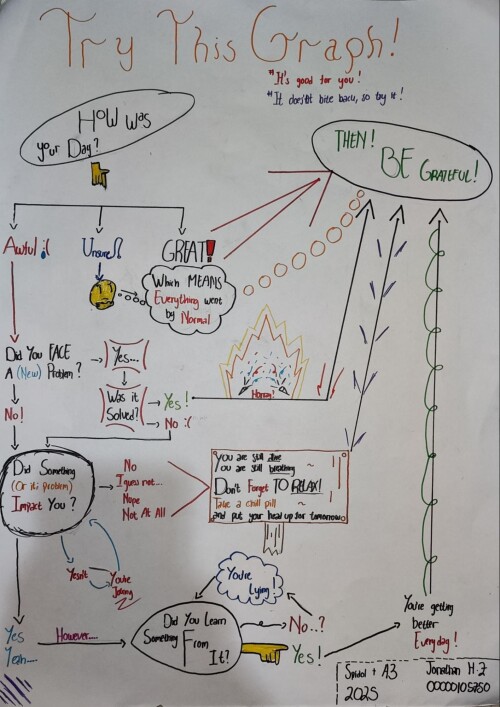 Try This Graph!
"It's good for you!
"It doesn't bite back, so try it!
How was
your Day?
THEN!
BE GRATEFUL!
Awful :(
Unsure
GREAT!
Which MEANS
Everything went
by Normal
Did You FACE
A (New) Problem?
Yes...
Was it
Solved?
Yes!
No :(
Horray!
No!
Did Something
(Or it: problem)
Impact You?
No
I guess not...
Nope
Not At All
You are still alive
You are still breathing ~
Don't Forget TO RELAX!
Take a chill pill ~
and put your head up for tomorrow
Yesn't
You're
Joking
You're
Lying!
Yes
Yeah....
However....
Did You Learn
Something
From
It?
No..?
Yes!
You're getting
better
Everyday!
Spidol + A3
2025
Jonathan H.J
00000105750